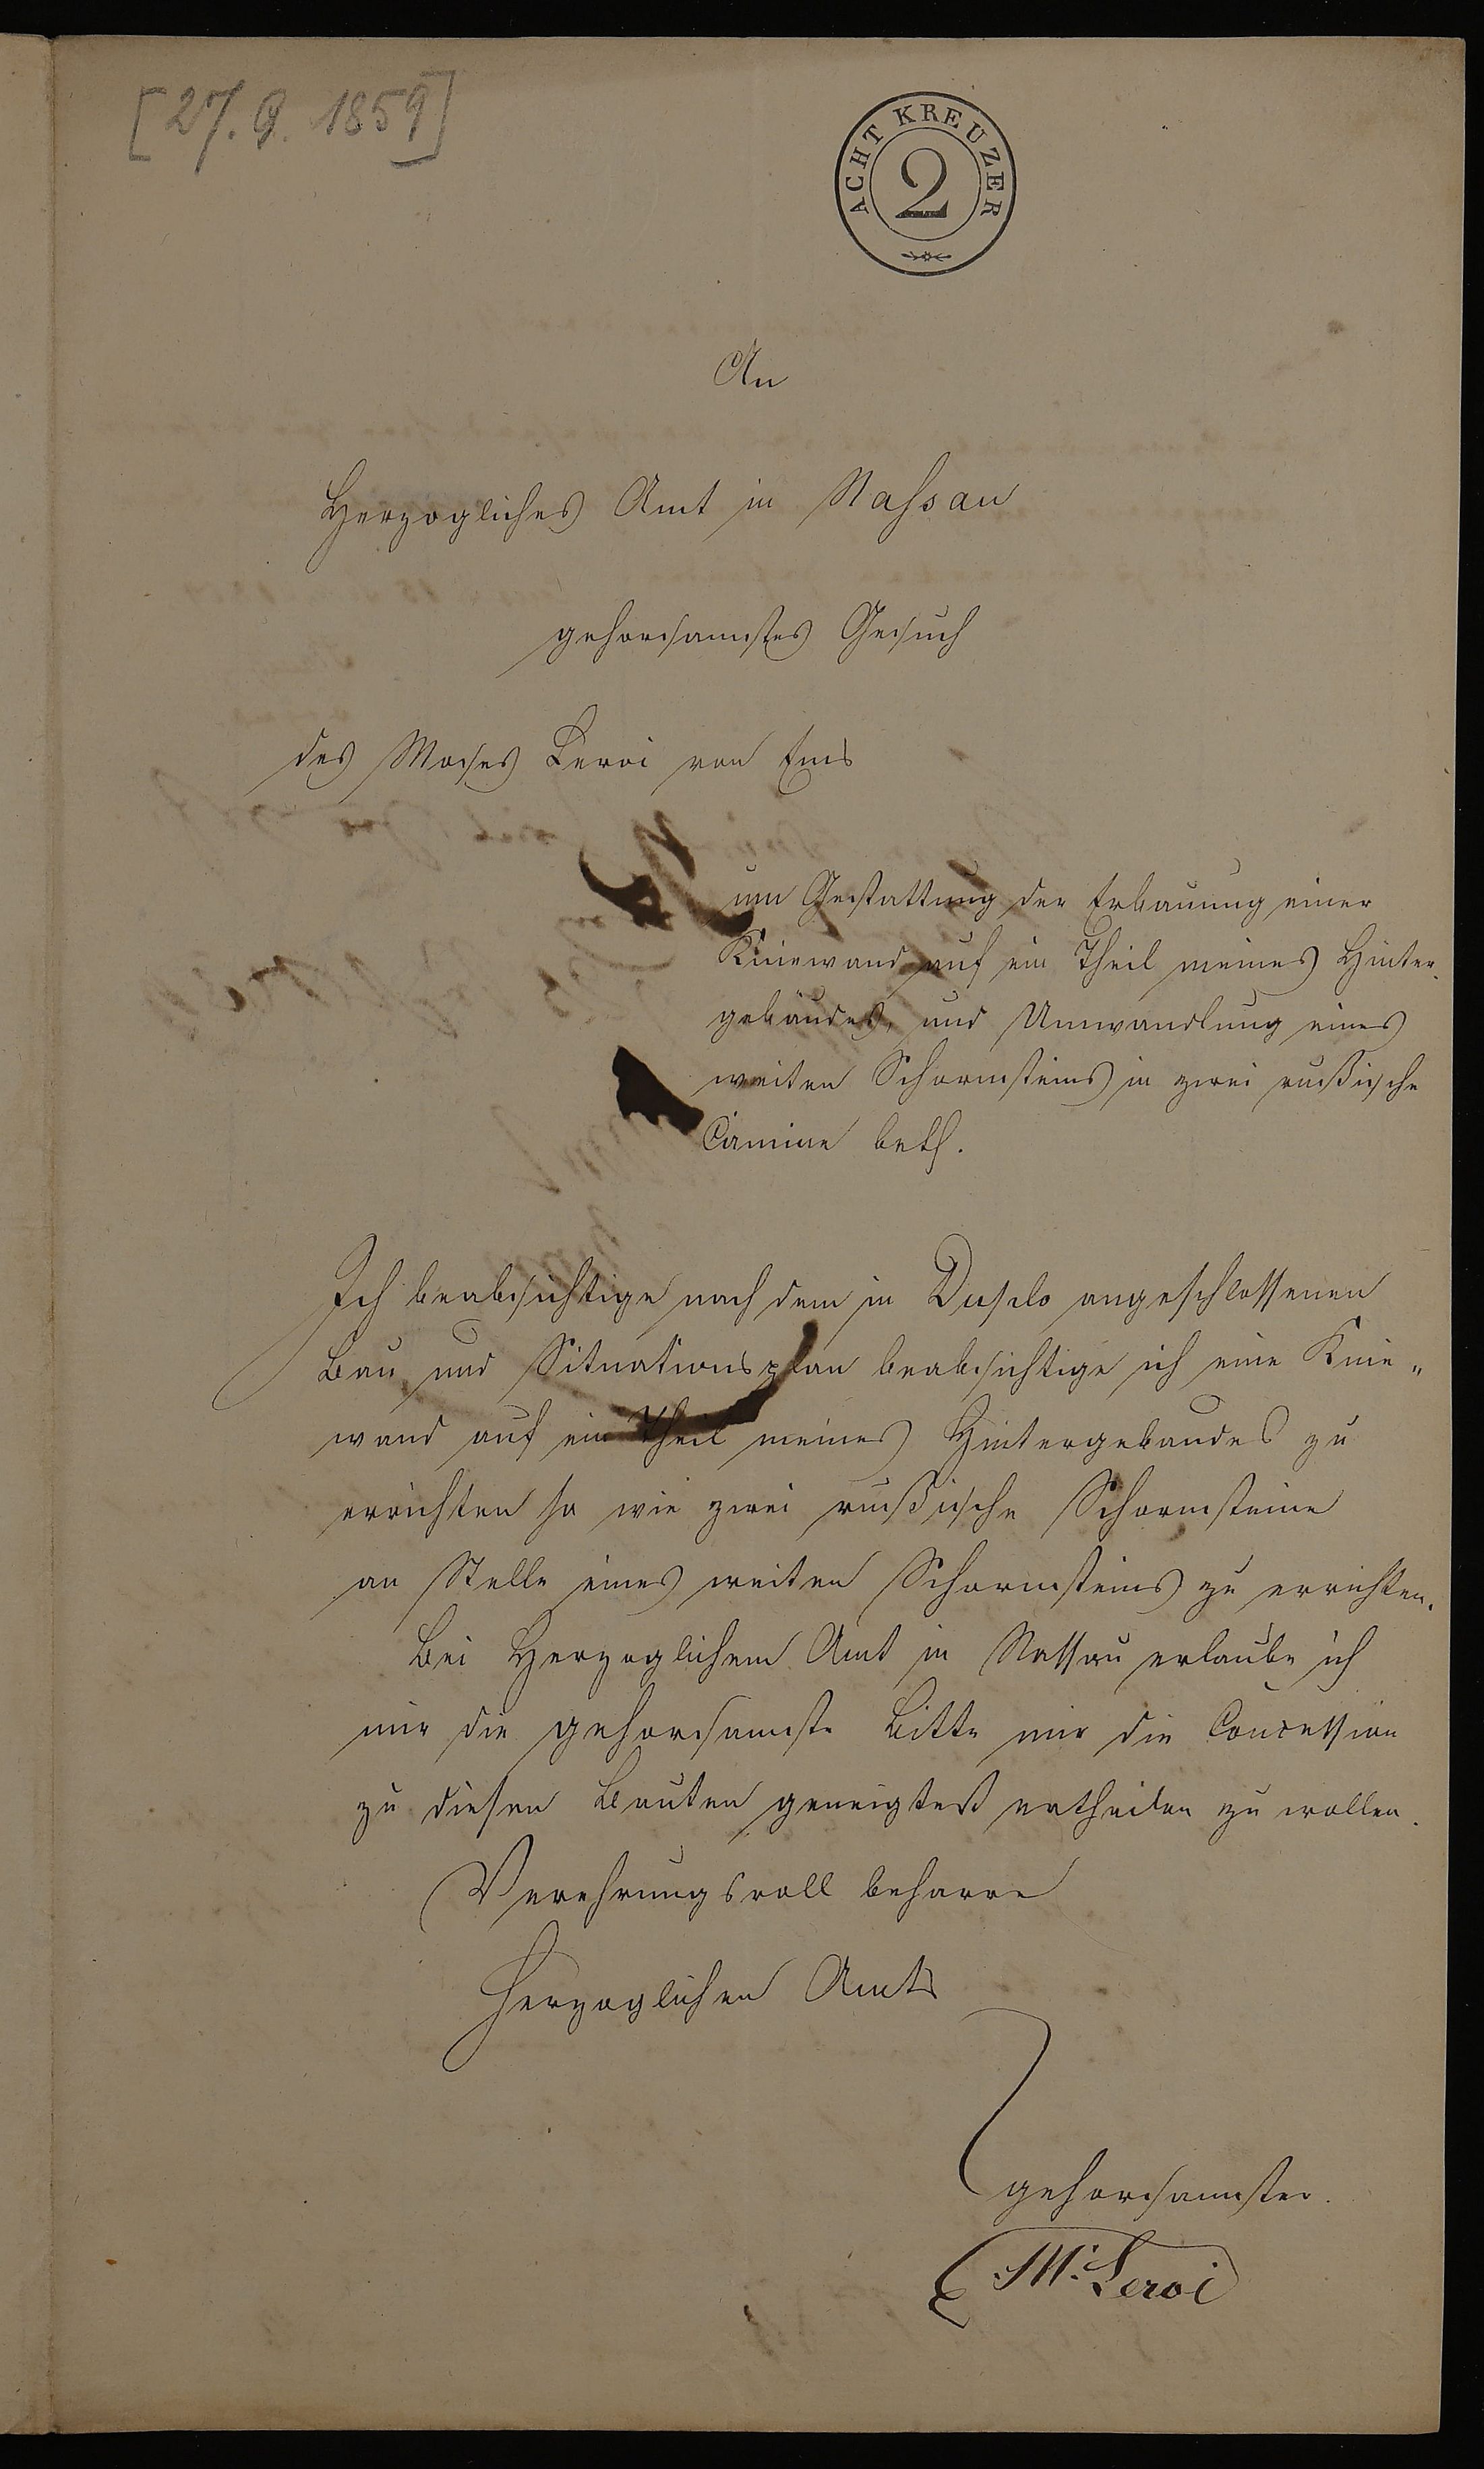 [27. 9. 1859]
ACHT KREUZER
2
An
Herzogliches Amt in Nassau
gehorsamstes Gesuch
des Moses Leroi von Ems
um Gestattung der Erbauung einer
Kniewand auf ein Theil meines Hinter-
gebäudes, und Umwandlung eines
weiten Schornsteins in zwei russische
Camine betf.
Ich beabsichtige nach dem in Duplo angeschlossenen
Bau und Situationsplan beabsichtige ich eine Knie„
wand auf ein Theil meines Hintergebaudes zu
errichten so wie zwei russische Schornsteine
an Stelle eines weiten Schornsteins zu errichten.
Bei Herzoglichem Amt in Nassau erlaube ich
mir die gehorsamste Bitte mir die Concession
zu diesen Bauten geneigtest ertheilen zu wollen.
Verehrungsvoll beharre
Herzoglichen Amts
gehorsamster.
M. Leroi